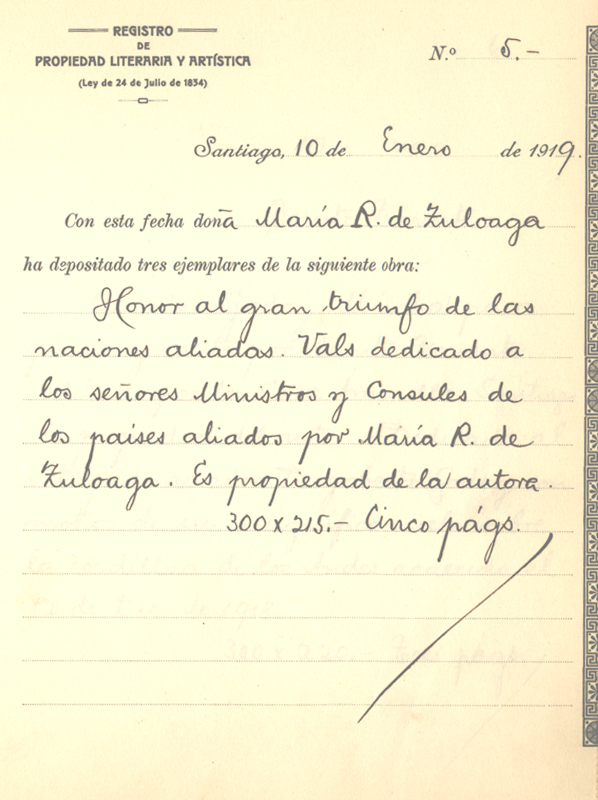 REGISTRO
DE
PROPIEDAD LITERARIA Y ARTÍSTICA
(Ley de 24 de Julio de 1834)
N.º 5.-
Santiago, 10 de Enero de 1919.
Con esta fecha doña María R. de Zuloaga
ha depositado tres ejemplares de la siguiente obra:
Honor al gran triunfo de las
naciones aliadas. Vals dedicado a
los señores Ministros y Consules de
los países aliados por María R. de
Zuloaga. Es propiedad de la autora.
300 x 215.- Cinco págs.
300 x 220.-